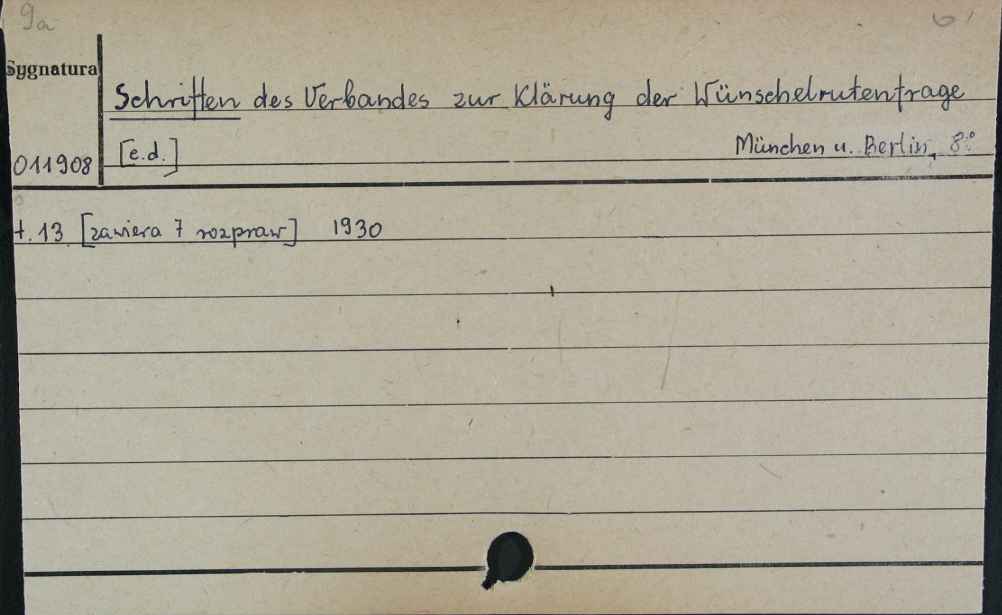 9a
Sygnatura
Schriften des Verbandes zur Klärung der Wünschelrutenfrage
011908
[e.d.] München u. Berlin, 8°
t. 13 [zawiera 7 rozpraw] 1930